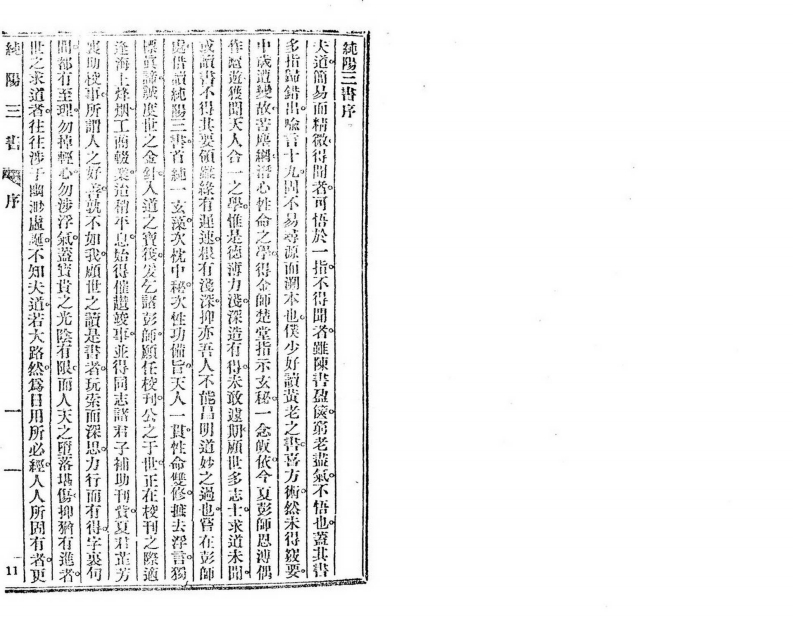 純陽三書序
夫道簡易而精微得聞者可悟於一指不得聞者雖陳書盈篋窮老盡氣不悟也蓋其書
多指歸錯出喻言十九固不易尋源而溯本也僕少好讀黃老之書喜方術然未得竅要
中歲遭變故苦塵網潛心性命之學得金師楚堂指示玄秘一念皈依今夏彭師恩溥偶
作滬遊獲聞天人合一之學惟是德薄力淺深造有得未敢遽期顧世多志士求道未聞
或讀書不得其要領雖緣有遲速根有淺深抑亦吾人不能昌明道妙之過也嘗在彭師
處借讀純陽三書首純一玄藻次枕中秘次性功備旨天人一貫性命雙修摭去浮言獨
標真諦誠度世之金針入道之寶筏爰乞諸彭師願任校刊公之于世正在校刊之際適
逢海上烽烟工商輟業迨稍平息始得催趲竣事並得同志諸君子補助刊貲夏君芷芳
襄助校事所謂人之好善孰不如我願世之讀是書者玩索而深思力行而有得字裏句
間都有至理勿掉輕心勿涉浮氣蓋寶貴之光陰有限而人天之墮落堪傷抑猶有進者
世之求道者往往涉于幽渺虛誕不知夫道若大路然為日用所必經人人所固有者更
純陽三書 序 一
11